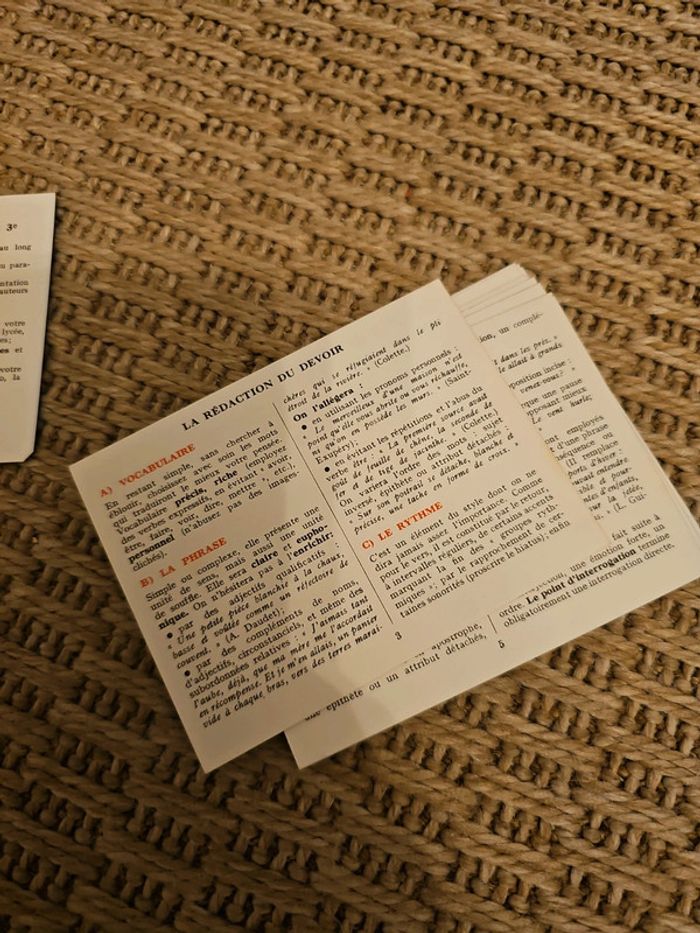 3e
au long
u para-
ntation
auteurs
votre
lycée,
es;
es et
votre
o, la
LA RÉDACTION DU DEVOIR
A) VOCABULAIRE
En restant simple, sans chercher à
éblouir, choisissez avec soin les mots
qui traduiront le mieux votre pensée.
Vocabulaire précis, riche (employez
des verbes expressifs, en évitant « avoir,
être, faire, voir, dire, mettre », etc.),
personnel (n'abusez pas des images-
clichés).
B) LA PHRASE
Simple ou complexe, elle présente une
unité de sens, mais aussi une unité
de souffle. Elle sera claire et eupho-
nique. On n'hésitera pas à l'enrichir:
• par des adjectifs qualificatifs :
« Une petite pièce blanchie à la chaux,
basse et voûtée comme un réfectoire de
couvent. » (A. Daudet);
• par des compléments de noms,
d'adjectifs, circonstanciels, et même des
subordonnées relatives : « J'aimais tant
l'aube, déjà, que ma mère me l'accordait
en récompense. Et je m'en allais, un panier
vide à chaque bras, vers des terres maraî-
chères qui se réfugiaient dans le pli
étroit de la rivière. » (Colette.)
On l'allégera :
• en utilisant les pronoms personnels :
« La merveilleux d'une maison n'est
point qu'elle vous abrite ou vous réchauffe,
ni qu'on en possède les murs. » (Saint-
Exupéry);
• en évitant les répétitions et l'abus du
verbe être : « La première source avait
goût de feuille de chêne, la seconde de
fer et de tige de jacinthe. » (Colette.)
On variera l'ordre des mots : sujet
inversé, épithète ou attribut détachés :
« Sur son poitrail se détache, blanche et
précise, une tache en forme de cross. »
C) LE RYTHME
C'est un élément du style dont on ne
dira jamais assez l'importance. Comme
pour le vers, il est constitué par le retour,
à intervalles réguliers, de certains accents
marquant la fin des « groupes ryth-
miques »; par le rapprochement de cer-
taines sonorités (proscrire le hiatus); enfin
3
tion, un complé-
dans les prés. »
le allait à grands
position incise :
venez-vous? »
que une pause
pposant mieux
Le vent hurle;
ont employés
d'une phrase
séquence ou
(Il remplace
ports d'hiver :
cauais entendre
les d'enfants,
sur la jetée.
s. » (L. Gui-
fait suite à
une émotion forte, un
ordre. Le point d'interrogation termine
obligatoirement une interrogation directe.
apostrophe,
une épithète ou un attribut détachés,
5